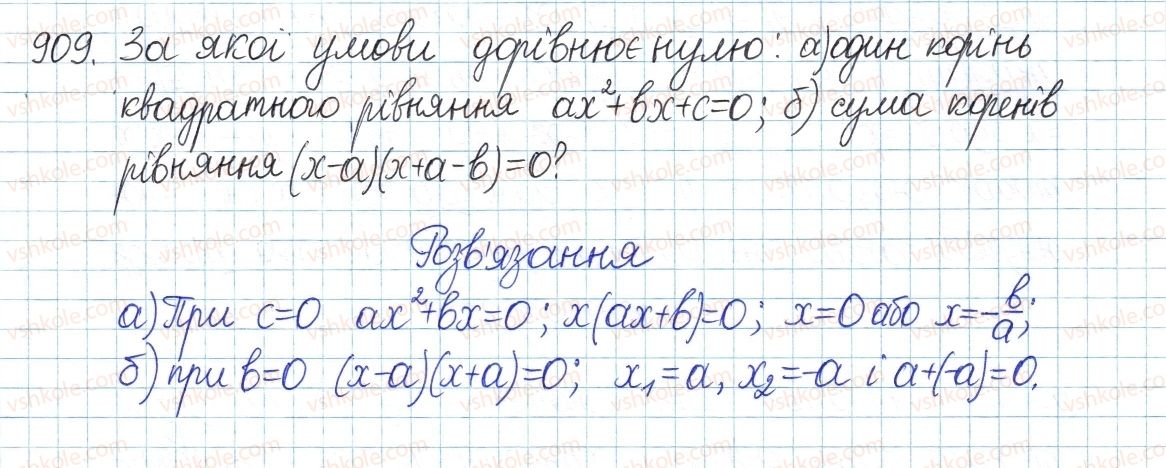 909. За якої умови дорівнює нулю: а) один корінь
квадратного рівняння ax²+bx+c=0; б) сума коренів
рівняння (x-a)(x+a-b)=0?
Розв'язання
а) При c=0 ax²+bx=0; x(ax+b)=0; x=0 або x=-b/a;
б) при b=0 (x-a)(x+a)=0; x₁=a, x₂=-a і a+(-a)=0.
vshkole.com